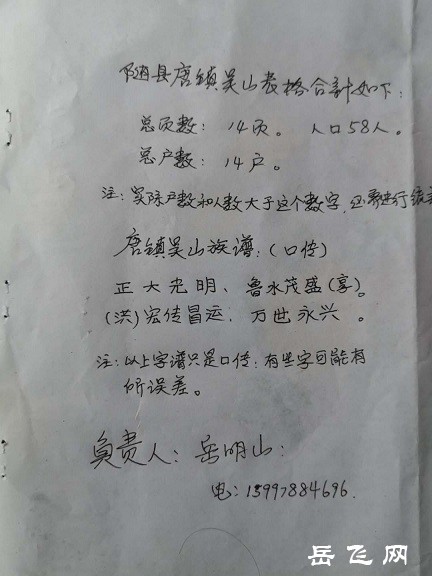 随县唐镇吴山表格合计如下:
总页数: 14页。 人口58人。
总户数: 14户。
注: 实际户数和人数大于这个数字, 还需进行统
唐镇吴山族谱: (口传)
正大光明、鲁水茂盛(享)。
(洪)宏传昌运. 万世永兴。
注: 以上字谱只是口传: 有些字可能有
所误差。
负责人: 岳明山:
电: 13997884696.
岳飞网